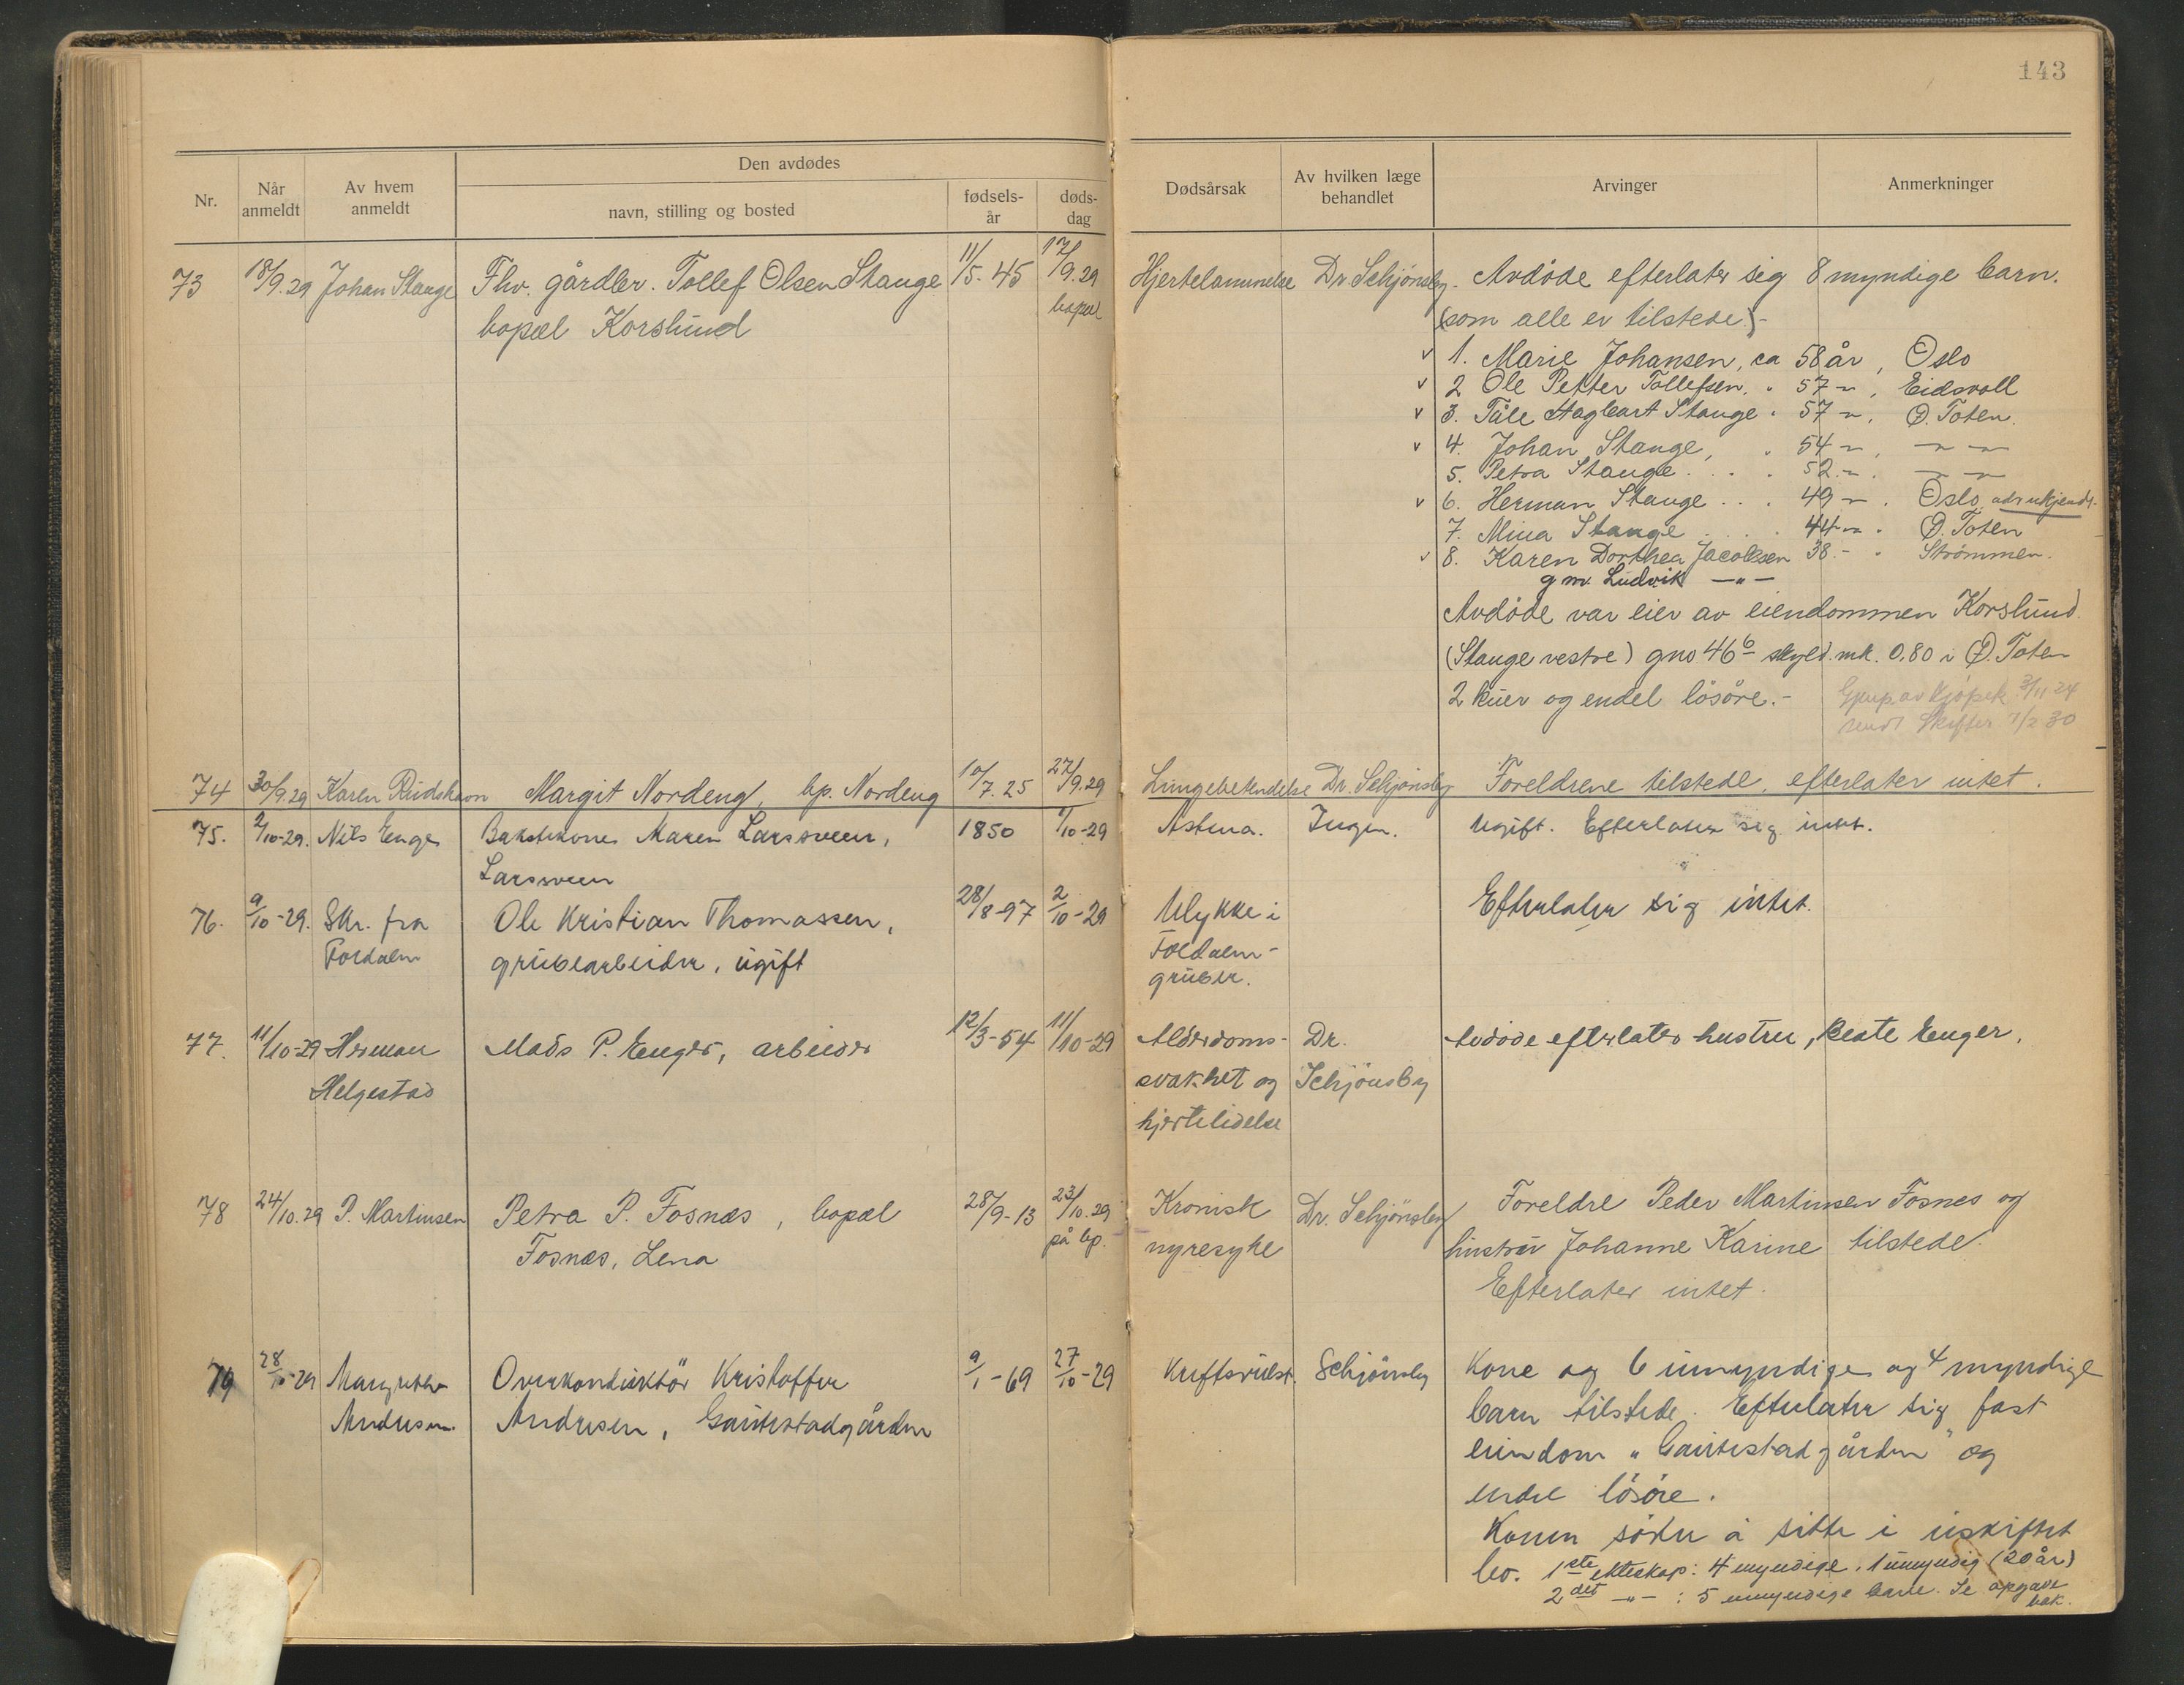 143
Den avdødes
Nr.
Når anmeldt
Av hvem anmeldt
navn, stilling og bosted
fødsels-år
døds-dag
Dødsårsak
Av hvilken læge behandlet
Arvinger
Anmerkninger
73 18/9.29 Johan Stange Fhv. gårdbr. Tollef Olsen Stange 11/5-45 17/9.29 Hjertelammelse Dr. Schjønsby. Avdöde efterlater sig 8 myndige barn.
bopæl Korslund bopæl (som alle er tilstede).-
v 1. Marie Johansen, ca 58 år, Oslo
v 2 Ole Petter Tollefsen. " 57 - , Eidsvoll
v 3. Tåle Hagbart Stange " 57 - , Ø. Toten.
v 4. Johan Stange, " 54 - , - -
5. Petra Stange . . . 52 - . - -
v 6. Herman Stange . . . 49 - . Oslo adr ukjendt.
7. Mina Stange . . . 44 - . Ø. Toten
v 8. Karen Dorthea Jacobsen 38.- . Strømmen.
g.m. Ludvik —"—
Avdöde var eier av eiendommen Korslund
(Stange vestre) gno 46 6 skyld. mk. 0,80 i Ø. Toten
2 kuer og endel lösöre.-
Gjenp av kjøpek. 3/11 24
sendt Skifter 7/2 30
74 30/9.29 Karen Rudshavn Margit Nordeng, bp. Nordeng 10/7.25 27/9.29 Lungebetendelse Dr. Schjønsby Foreldrene tilstede, efterlater intet.
75. 2/10-29. Nils Enger Bakstekone Maren Larssveen, 1850 1/10-29 Astma. Ingen. Ugift. Efterlater sig intet.
Larssveen
76. 9/10-29. Skr. fra Ole Kristian Thomassen, 28/8-97 2/10-29 Ulykke i Efterlater sig intet.
Foldalen grubearbeider, ugift Foldalen-
gruber.
77. 11/10-29 Herman Mads P. Enger, arbeider 12/3-54 11/10-29 Alderdoms- Dr. Avdøde efterlater hustru, Beate Enger.
Helgestad svakhet og Schjønsby
hjertelidelse
78 24/10.29 P. Martinsen Petra P. Fosnæs, bopæl 28/9-13 23/10.29 Kronisk Dr. Schjønsby Foreldre Peder Martinsen Fosnes og
Fosnæs, Lena på bp. nyresyke hustru Johanne Karine tilstede.
Efterlater intet.
79 28/10-29 Margrethe Overkonduktör Kristoffer 9/1-69 27/10-29 Kreftsvulst. Schjønsby Kone og 6 umyndige og 4 myndige
Andresen. Andresen, Gautestadgården barn tilstede. Efterlater sig fast
eiendom "Gautestadgården" og
endel lösöre.
Konen söker å sitte i uskiftet
bo. 1ste ekteskap: 4 myndige, 1 umyndig (20 år)
2det —"— : 5 umyndige barn. Se opgave
bak.